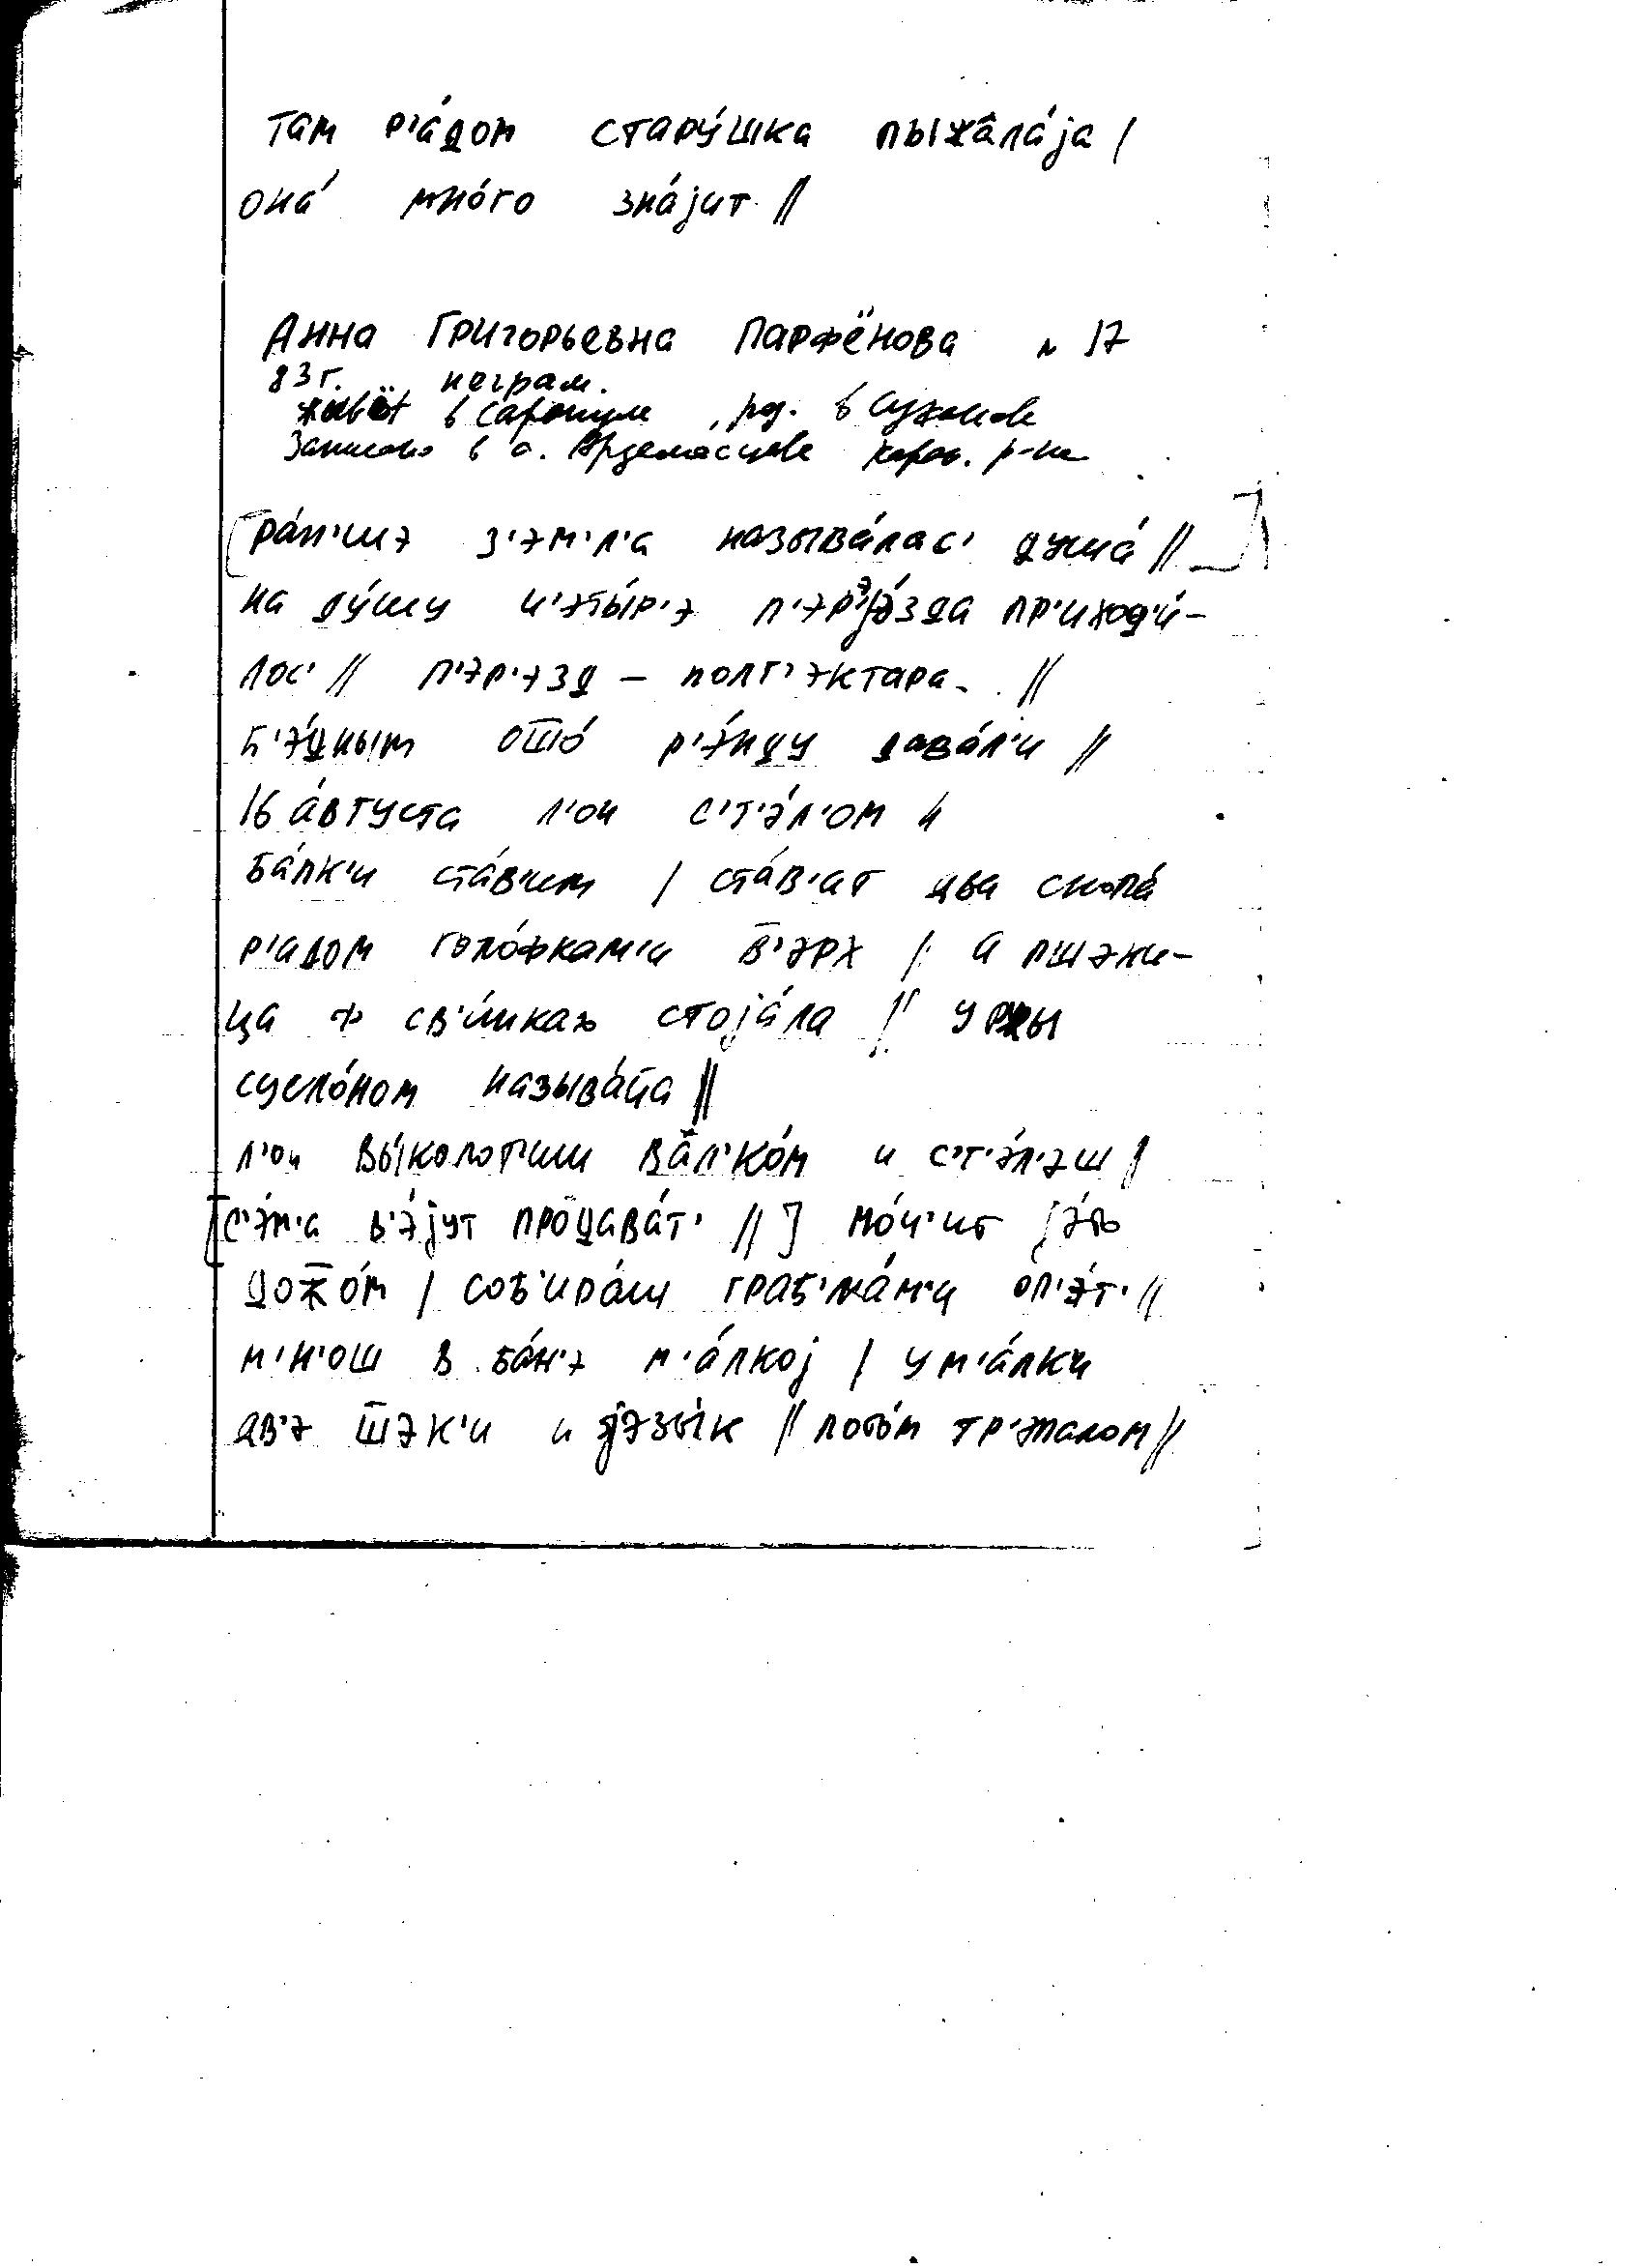 там р'а́дом стару́шка пыжала́jа /
она́ мно́го зна́jит //
Анна Григорьевна Парфёнова № 17
83 г. неграм.
живёт в Сарапуле, род. в Суханове
Записано в с. Арзамасцеве карак. р-на
[ра́н'шэ з'эм'л'а называ́лас' душа́ // ]
на ду́шу ч'эты́р'э п'эр'jэ́зда пр'иход'и́-
лос' // п'эр'эзд – полг'эктара. //
б'э́дным ошо́ р'э́нду дава́л'и //
16 а́вгуста л'он с'т'э́л'ом и
ба́пк'и ста́вим / ста́в'ат два снопа́
р'адом голо́фкам'и в̄'эрх / а пшэни-
ца ф св'и́нках стоjа́ла // у ржы
сусло́ном называ́йа //
л'он вы́колот'иш вал'ко́м и с'т'э́л'эш /
[с'э́м'а в'э́jут продава́т' // ] мо́ч'ит jэ́во
дож̄о́м / соб'ира́ш граб'л'а́м'и оп'э́т' //
м'н'ош в ба́н'э м'а́лкоj / у м'а́лки
дв'э ш̄эк'и и jэзы́к // пото́м тр'эпалом //